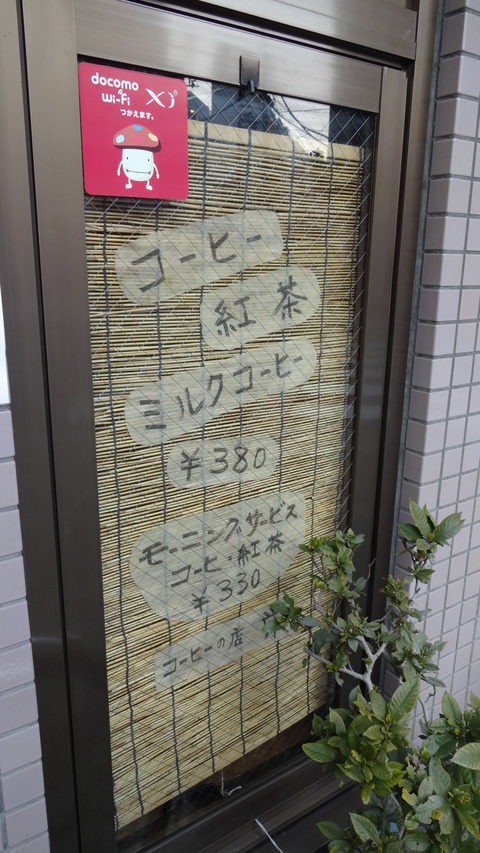 docomo
Wi-Fi Xi
つかえます。
コーヒー
紅茶
ミルクコーヒー
¥380
モーニングサービス
コーヒー・紅茶
¥330
コーヒーの店